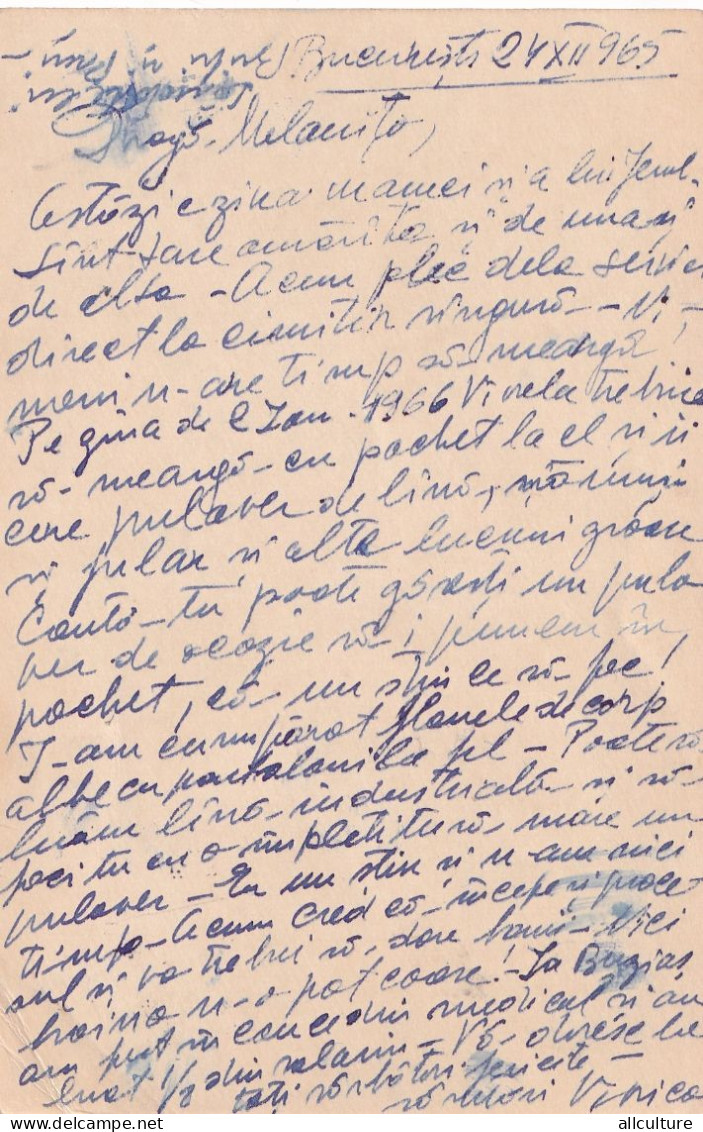 București 24 XII 965
Dragă Melanița,
Astăzi e ziua mamei și a lui
sînt tare amărîtă și de una și
de alta - Acum plec dela servici
direct la cimitir singură - Ni-
meni n-are timp să meargă!
Pe ziua de 2 Ian. 1966 trebuie
să meargă cu pachet la el și îi
cere pulăver de lînă, mănuși
și fular și alte lucruri groase
Caută tu poate găsești un pulo-
ver de ocazie să-i punem în
pachet, că nu știu ce să fac!
I-am cumpărat flanele de corp
albe cu pantaloni la fel - Poate să
luăm lînă industrială și să-
faci tu cu o împletitură mare un
pulover - Eu nu știu și n-am nici
timp - Acum cred că începe și proce-
sul și va trebui să dăm bani - Nici
haina n-o pot coase! - La Buziaș
am fost în concediu medical și au
luat 1/2 din salariu - Vă doresc la
toți sărbători fericite
sărutări